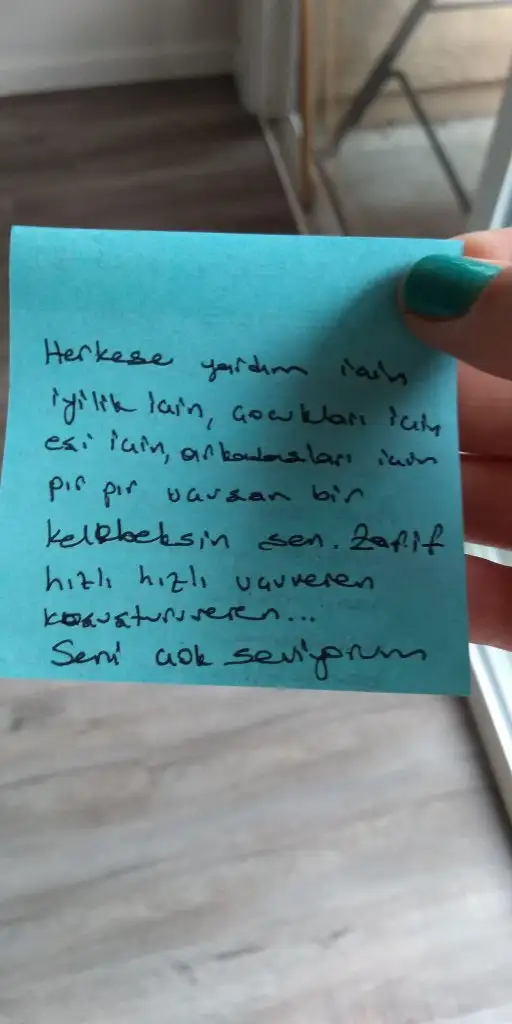 Herkese yardım için
iyilik için, çocukları için
eşi için, arkadaşları için
pır pır uçuşan bir
kelebeksin sen. Zarif
hızlı hızlı uçuveren
koşuşturuveren...
Seni çok seviyorum